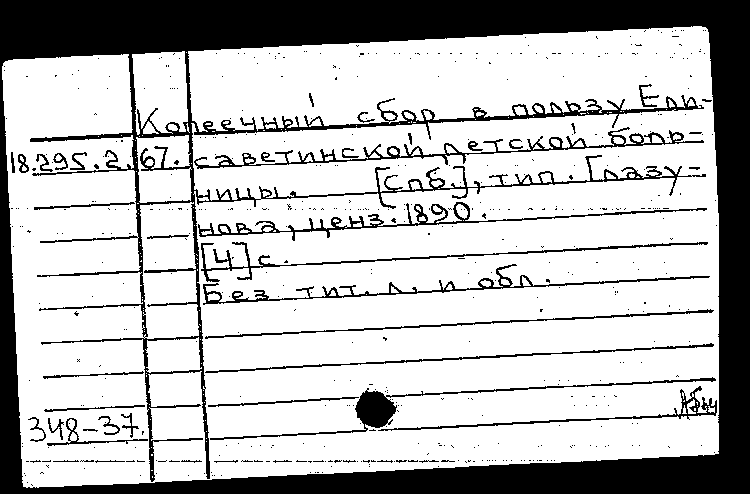 Копеечный сбор в пользу Ели-
18.295.2.67. саветинской детской боль-
ницы. [Спб.], тип. Глазу-
нова, ценз. 1890.
[4] с.
Без тит. л. и обл.
348-37.